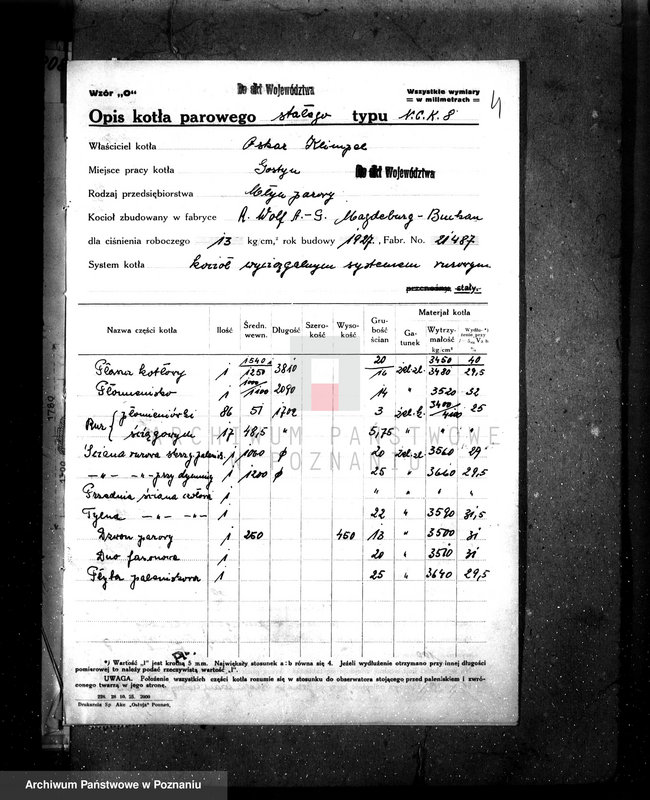 Wzór „O"
Do akt Województwa
Wszystkie wymiary
= w milimetrach =
4
Opis kotła parowego stałego typu N.C.K. 8
Właściciel kotła Oskar Klimpel
Miejsce pracy kotła Gostyn
Do akt Województwa
Rodzaj przedsiębiorstwa Młyn parowy
Kocioł zbudowany w fabryce R. Wolf A.-G. Magdeburg-Buckau
dla ciśnienia roboczego 13 kg/cm,² rok budowy 1927, Fabr. No. 21487
System kotła kocioł wyciągalnym systemem rurowym
przenośny stały.
Nazwa części kotła Ilość Średn. wewn. Długość Szerokość Wysokość Grubość ścian Materjał kotła
Gatunek Wytrzymałość kg/cm² Wydłużenie przy
Płaszcz kotłowy 1 1540 1250 3810 20 14 żel.zl. 3450 3480 40 29,5
Płomienisko 1 2090 14 " 3520 32
Rur { płomieniówki 86 51 1702 3 żel. 3400 25
ściągowym 17 48,5 " 5,75 " " "
Ściana rurowa skrz. palenis. 1 1060 ϕ 20 żel.zl. 3560 29
-"- -"- przy dymnicy 1 1200 ϕ 25 " 3660 29,5
Przednia ściana czołowa 1 " " " "
Tylna -"- -"- 1 22 " 3590 31,5
Dzwon parowy 1 250 450 13 " 3500 31
Dno fasonowe 1 20 " 3510 31
Płyta paleniskowa 1 25 " 3640 29,5
*) Wartość „l" jest krotną 5 mm. Największy stosunek a:b równa się 4. Jeżeli wydłużenie otrzymano przy innej długości
pomiarowej to należy podać rzeczywistą wartość „l".
UWAGA. Położenie wszystkich części kotła rozumie się w stosunku do obserwatora stojącego przed paleniskiem i zwróconego twarzą w jego stronę.
Drukarnia Sp. Akc. „Ostoja" Poznań.
ARCHIWUM PAŃSTWOWE
W POZNANIU
Archiwum Państwowe w Poznaniu